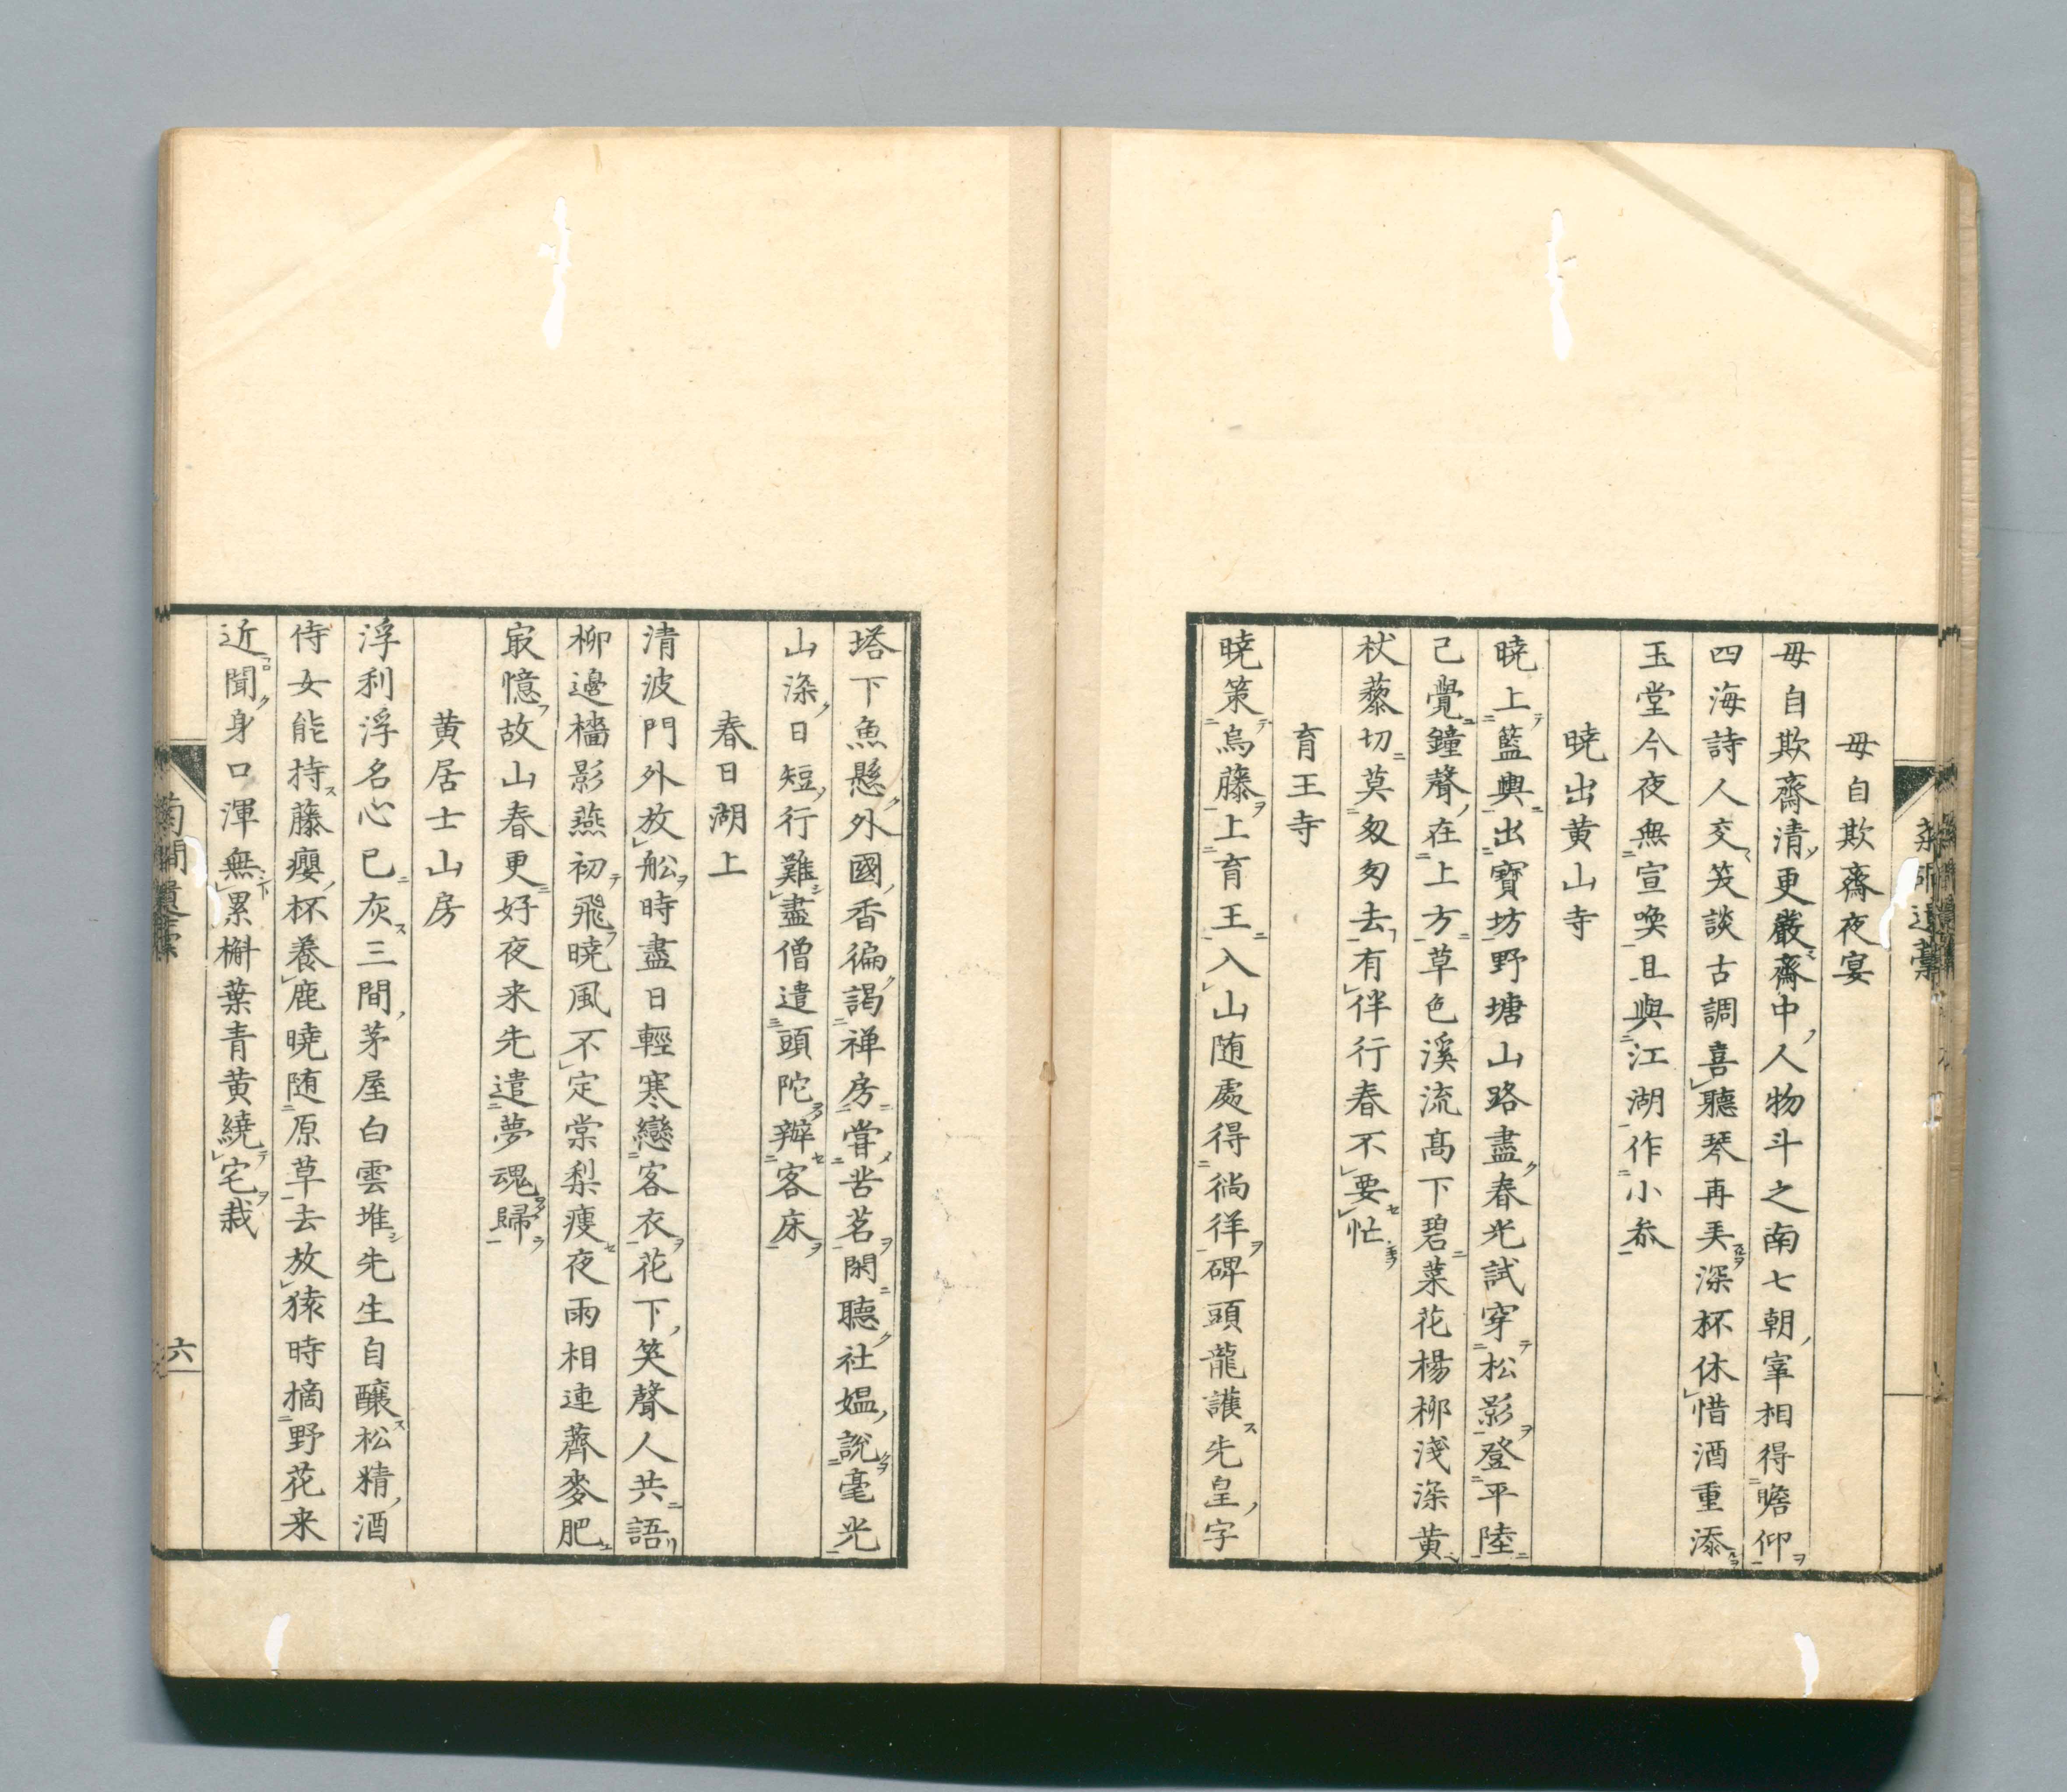 毋自欺齋夜宴
毋自欺齋清更嚴齋中人物斗之南七朝宰相得瞻仰
四海詩人交笑談古調喜聽琴再美深杯休惜酒重添
玉堂今夜無宣喚且與江湖作小參
曉出黃山寺
曉上籃輿出寶坊野塘山路盡春光試穿松影登平陸
已覺鐘聲在上方草色溪流高下碧菜花楊柳淺深黃
杖藜切莫匆匆去有伴行春不要忙
育王寺
曉策烏藤上育王入山随處得徜徉碑頭龍護先皇字
塔下魚懸外國香徧謁禅房嘗苦茗閑聽社媼說毫光
山深日短行難盡僧遣頭陀辦客床
春日湖上
清波門外放舩時盡日輕寒戀客衣花下笑聲人共語
柳邊檣影燕初飛曉風不定棠梨瘦夜雨相連薺麥肥
㝡憶故山春更好夜来先遣夢魂歸
黄居士山房
浮利浮名心已灰三間茅屋白雲堆先生自釀松精酒
侍女能持藤癭杯養鹿曉随原草去放猿時摘野花来
近聞身口渾無累槲葉青黃繞宅栽
六